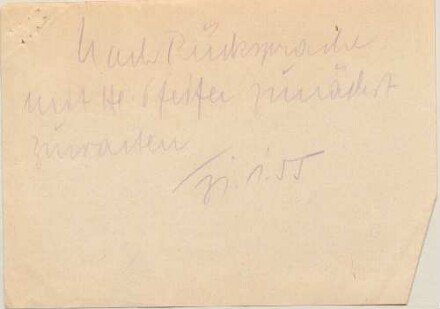 Nach Rücksprache
mit H. Pfeifer zunächst
zuwarten
1.55